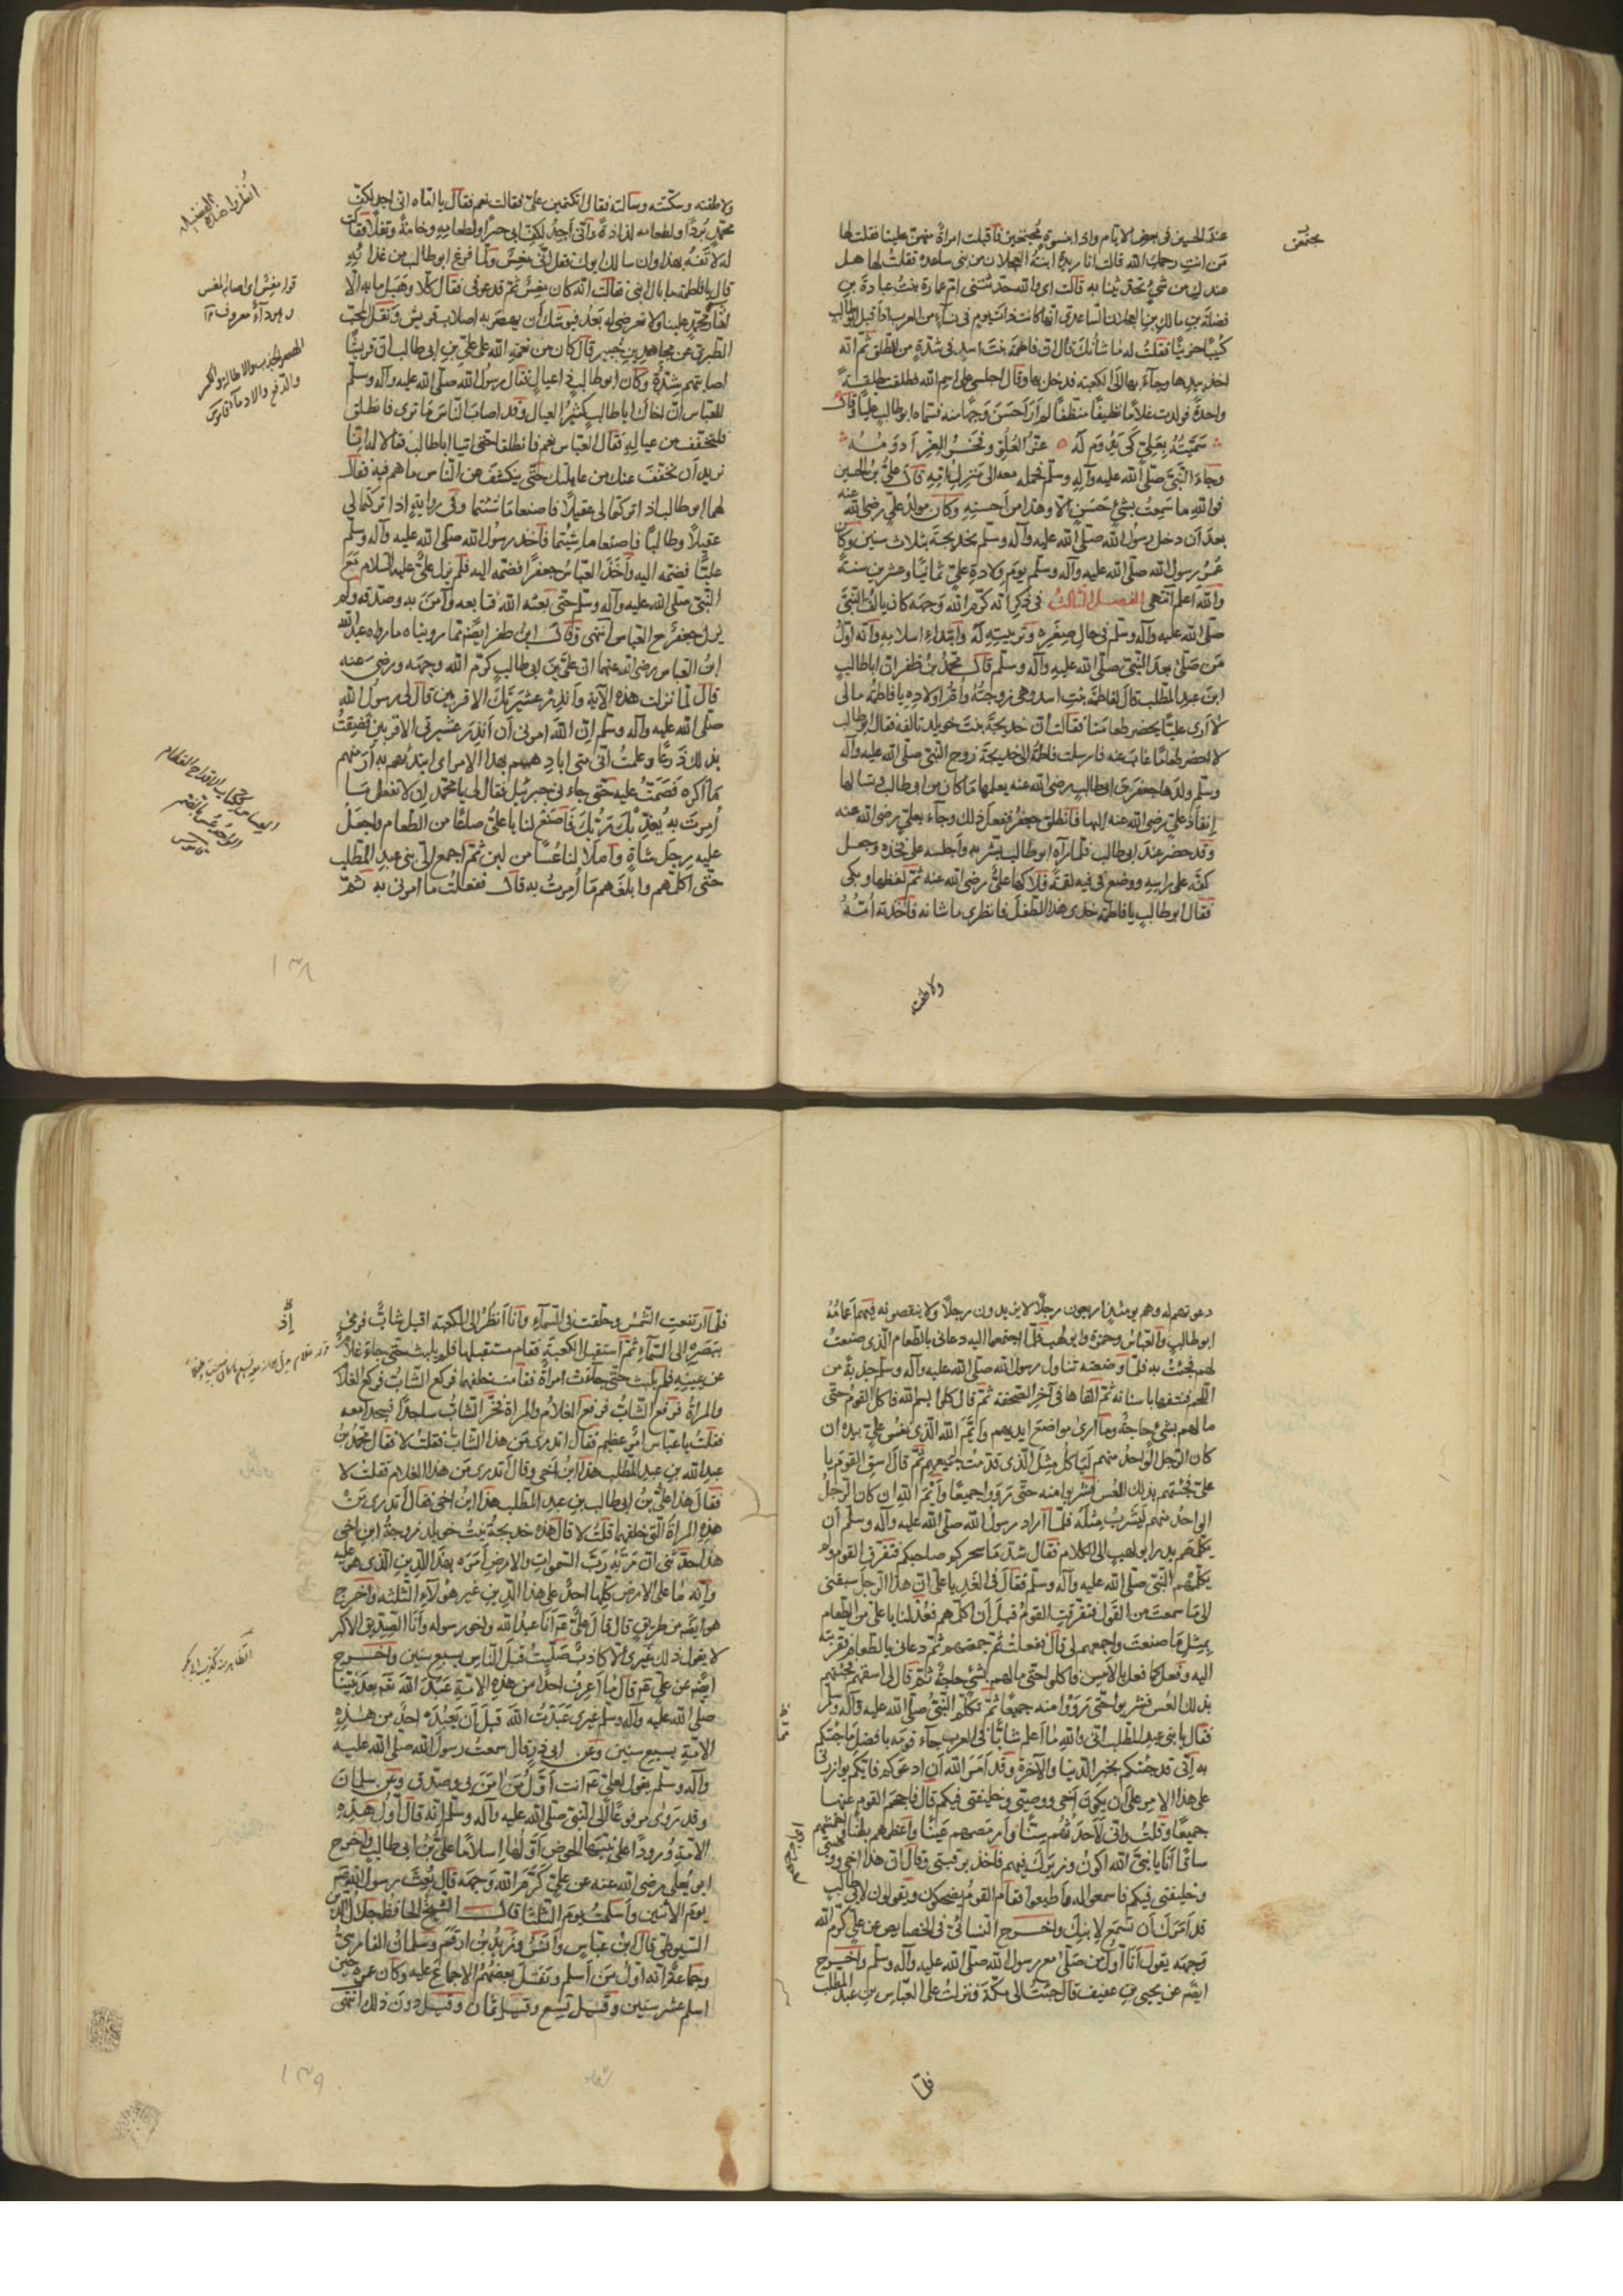 عند الحسين فى بعض الايام واذا بنسوة مجتمعين فاقبلت امرأة منهن علينا فقلت لها
من انت رحمك الله قالت انا زبدة ابنة العجلان من بنى ساعدة فقلت لها هل
عندك من شئ تحدثينا به قالت اى والله حدثتنى ام عمارة بنت عبادة بن
فضلة بن مالك بن العجلان الساعدى انها كانت ذات يوم فى نساء من العرب اذ اقبل ابوطالب
كئيبا حزينا فقلت له ما شأنك قال ان فاطمة بنت اسد فى شدة من الطلق ثم انه
اخذ بيدها وجاء بها الى الكعبة فدخل بها وقال اجلسى على اسم الله فطلقت طلقة
واحدة فولدت غلاما نظيفا منظفا لم ار احسن وجها منه فسماه ابوطالب عليا وقال
سميته بعلى كى يدوم له عز العلو وفخر العز ادومه
وجاء النبى صلى الله عليه وآله وسلم فحمله معه الى منزل امه قال على بن الحسين
فوالله ما سمعت بشئ حسن الا وهذا من احسنه وكان مولد على رضى الله عنه
بعد ان دخل رسول الله صلى الله عليه وآله وسلم بخديجة بثلاث سنين وكان
عمر رسول الله صلى الله عليه وآله وسلم يوم ولادة على ثمانيا وعشرين سنة
والله اعلم انتهى الفصل الثالث فى ذكر انه كرم الله وجهه كان يالف النبى
صلى الله عليه وآله وسلم فى حال صغره وتربيته له وابتداء اسلامه وانه اول
من صلى بعد النبى صلى الله عليه وآله وسلم قال محمد بن ظفر ان اباطالب
ابن عبد المطلب قال لفاطمة بنت اسد وهى زوجته وام اولاده يا فاطمة مالى
لا ارى عليا يحضر طعامنا فقالت ان خديجة بنت خويلد تالفه فقال ابوطالب
لا احضر طعاما غاب عنه فارسلت فاطمة الى خديجة زوج النبى صلى الله عليه وآله
وسلم ولدها جعفر بن ابى طالب رضى الله عنه يعلمها ما كان من ابى طالب وتسالها
انفاذ على رضى الله عنه اليها فانطلق جعفر ففعل ذلك وجاء بعلى رضى الله عنه
وقد حضر عند ابى طالب فلما رآه ابو طالب بشر به واجلسه على فخذه وجعل
كفه على راسه ووضع فى فيه لقمة فلاكها على رضى الله عنه ثم لفظها وبكى
فقال ابو طالب يا فاطمة خذى هذا الطفل فانظرى ما شانه فاخذته امه
ولاطفته
ولاطفته وسكتته وسالته فقال اتكتمين على فقالت نعم فقال يا اماه انى اجد لكف
محمد بردا ولطعامه لذاذة وانى اجد لكف ابى حرا ولطعامه وخامة وتفلا فقالت
له لا تفه بهذا وان سالك ابوك فقل انى مغس ولما فرغ ابو طالب من غذائه
قال يا فاطمة ما بال ابنى فقالت انه كان مغس ثم قد عوفى فقال كلا وهبل ما به الا
الفا محمد علينا ولا تعرضى له بعد فيوشك ان يهصر به اصلاب قريش ونقل المحب
الطبرى عن مجاهد بن جبير قال كان من نعمة الله على على بن ابى طالب ان قريشا
اصابتهم شدة وكان ابو طالب ذا عيال فقال رسول الله صلى الله عليه وآله وسلم
للعباس ان اخاك ابا طالب كثير العيال وقد اصاب الناس ما ترى فانطلق
فلنخفف من عياله فقال العباس نعم فانطلقا حتى اتيا اباطالب فقالا له انا
نريد ان نخفف عنك من عايلتك حتى ينكشف عن الناس ما هم فيه فقال
لهما ابو طالب اذا تركتما لى عقيلا فاصنعا ما شئتما وفى رواية اذا تركتما لى
عقيلا وطالبا فاصنعا ما شئتما فاخذ رسول الله صلى الله عليه وآله وسلم
عليا فضمه اليه واخذ العباس جعفرا فضمه اليه فلم يزل على عليه السلام مع
النبى صلى الله عليه وآله وسلم حتى بعثه الله فتابعه وآمن به وصدقه ولم
يزل جعفر مع العباس انتهى وقال ابن ظفر ايضا مما رويناه ما رواه عبد الله
ابن العباس رضى الله عنهما ان على بن ابى طالب كرم الله وجهه ورضى عنه
قال لما نزلت هذه الآية وانذر عشيرتك الاقربين قال لى رسول الله
صلى الله عليه وآله وسلم ان الله امرنى ان انذر عشيرتى الاقربين فضقت
بذلك ذرعا وعلمت انى متى اباديهم بهذا الامر اى ابتدئهم به ار منهم
ما اكره فصمت عليه حتى جاءنى جبرئيل فقال لى يا محمد ان لا تفعل ما
امرت به يعذبك ربك فاصنع لنا يا على صاعا من الطعام واجعل
عليه رجل شاة واملا لنا عسا من لبن ثم اجمع الى بنى عبد المطلب
حتى اكلمهم وابلغهم ما امرت به قال ففعلت ما امرنى به ثم
انظروا هذه الفضيلة
١٣٨
دعوتهم له وهم يومئذ اربعون رجلا لا يزيدون رجلا ولا ينقصونه فيهم اعمامه
ابو طالب والعباس وحمزة وابو لهب فلما اجتمعوا اليه دعانى بالطعام الذى صنعت
لهم فجئت به فلما وضعته تناول رسول الله صلى الله عليه وآله وسلم جذبة من
اللحم فنتفها باسنانه ثم القاها فى آخر الصحفة ثم قال كلوا بسم الله فاكل القوم حتى
ما لهم بشئ حاجة وما ارى مواضع ايديهم وايم الله الذى نفس على بيده ان
كان الرجل الواحد منهم لياكل مثل الذى قدمت لجميعهم ثم قال اسق القوم يا
على فجئتهم بذلك العس فشربوا منه حتى رووا جميعا وايم الله ان كان الرجل
الواحد منهم ليشرب مثله فلما اراد رسول الله صلى الله عليه وآله وسلم ان
يكلمهم بدر ابو لهب الى الكلام فقال شد ما سحركم صاحبكم فتفرق القوم ولم
يكلمهم النبى صلى الله عليه وآله وسلم فقال فى الغد يا على ان هذا الرجل سبقنى
الى ما سمعت من القول فتفرقت القوم قبل ان اكلمهم فعد لنا يا على من الطعام
بمثل ما صنعت واجمعهم لى قال ففعلت ثم جمعتهم ثم دعانى بالطعام فقربته
اليه ففعل كما فعل بالامس فاكلوا حتى ما لهم بشئ حاجة ثم قال لى اسقهم فجئتهم
بذلك العس فشربوا حتى رووا منه جميعا ثم تكلم النبى صلى الله عليه وآله وسلم
فقال يا بنى عبد المطلب انى والله ما اعلم شابا فى العرب جاء قومه بافضل ما جئتكم
به انى قد جئتكم بخير الدنيا والآخرة وقد امر الله ان ادعوكم فايكم يوازرنى
على هذا الامر على ان يكون اخى ووصيى وخليفتى فيكم قال فاحجم القوم عنها
جميعا وقلت وانى لاحدثهم سنا وارمصهم عينا واعظمهم بطنا واحمشهم
ساقا انا يا نبى الله اكون وزيرك فيهم فاخذ برقبتى وقال ان هذا اخى ووصيى
وخليفتى فيكم فاسمعوا له واطيعوا فقام القوم يضحكون ويقولون لابى طالب
قد امرك ان تسمع لابنك واخرج النسائى فى الخصايص عن على كرم الله
وجهه يقول انا اول من صلى مع رسول الله صلى الله عليه وآله وسلم واخرج
ايضا عن يحيى بن عفيف قال جئت الى مكة فنزلت على العباس بن عبد المطلب
فلما
فلما ارتفعت الشمس وحلقت فى السماء وانا انظر الى الكعبة اقبل شاب فرمى
ببصره الى السماء ثم استقبل الكعبة فقام مستقبلها فلم يلبث حتى جاء غلام
عن يمينه فلم يلبث حتى جاءت امرأة فقامت خلفهما فركع الشاب فركع الغلام
والمرأة فرفع الشاب فرفع الغلام والمرأة فخر الشاب ساجدا فسجدا معه
فقلت يا عباس امر عظيم فقال اتدرى من هذا الشاب فقلت لا فقال محمد بن
عبد الله بن عبد المطلب هذا ابن اخى وقال اتدرى من هذا الغلام فقلت لا
فقال هذا على بن ابى طالب بن عبد المطلب هذا ابن اخى فقال اتدرى من
هذه المرأة التى خلفهما قلت لا قال هذه خديجة بنت خويلد زوجة ابن اخى
هذا حدثنى ان ربه رب السموات والارض امره بهذا الدين الذى هو عليه
وانه ما على الارض كلها احد على هذا الدين غير هؤلاء الثلثة واخرج
هو ايضا من طريق قال قال على انا عبد الله واخو رسوله وانا الصديق الاكبر
لا يقول ذلك غيرى الا كاذب صليت قبل الناس بسبع سنين واخرج
ايضا عن على قال ما اعرف احدا من هذه الامة عبد الله بعد نبينا
صلى الله عليه وآله وسلم غيرى عبدت الله قبل ان يعبده احد من هذه
الامة بسبع سنين وعن ابى ذر قال سمعت رسول الله صلى الله عليه
وآله وسلم يقول لعلى انت اول من آمن بى وصدق وعن سلمان
وقد روى مرفوعا الى النبى صلى الله عليه وآله وسلم انه قال اول هذه
الامة ورودا على نبيها الحوض اولها اسلاما على بن ابى طالب واخرج
ابو يعلى رضى الله عنه عن على كرم الله وجهه قال بعث رسول الله
يوم الاثنين واسلمت يوم الثلثا قال الشيخ الحافظ جلال الدين
السيوطى قال ابن عباس وانس وزيد بن ارقم وسلمان الفارسى
وجماعة انه اول من اسلم ونقل بعضهم الاجماع عليه وكان عمره حين
اسلم عشر سنين وقيل تسع وقيل ثمان وقيل دون ذلك انتهى
١٣٩